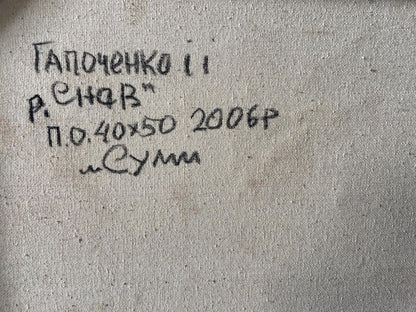 Гапоченко іі
р. „Снов"
п.о. 40х50 2006р
м Суми